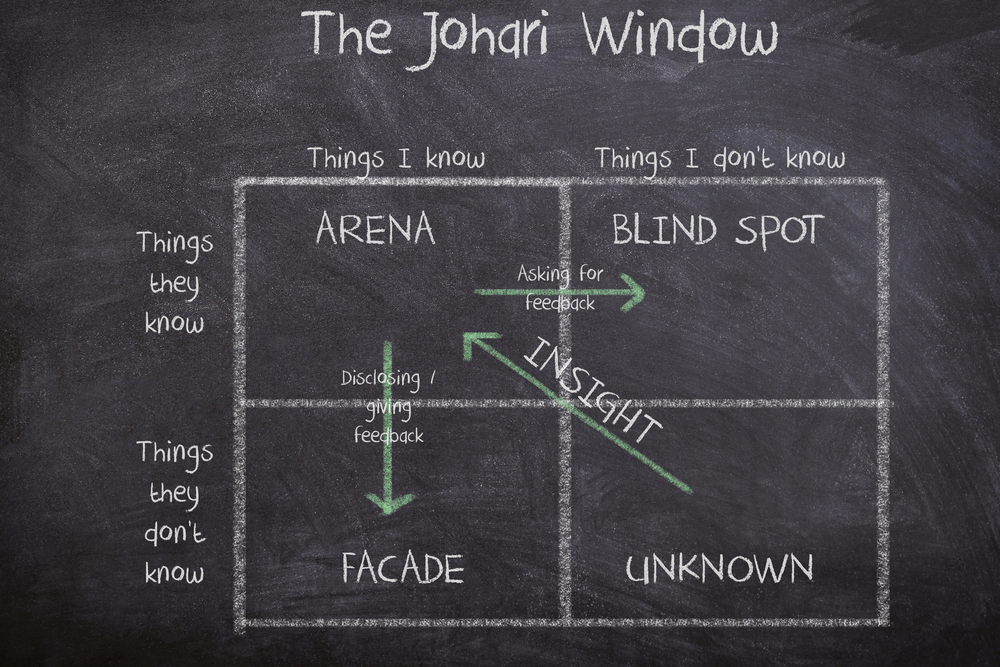 The Johari Window
Things I know
Things I don't know
Things
they
know
ARENA
BLIND SPOT
Asking for
feedback
INSIGHT
Disclosing /
giving
feedback
Things
they
don't
know
FACADE
UNKNOWN